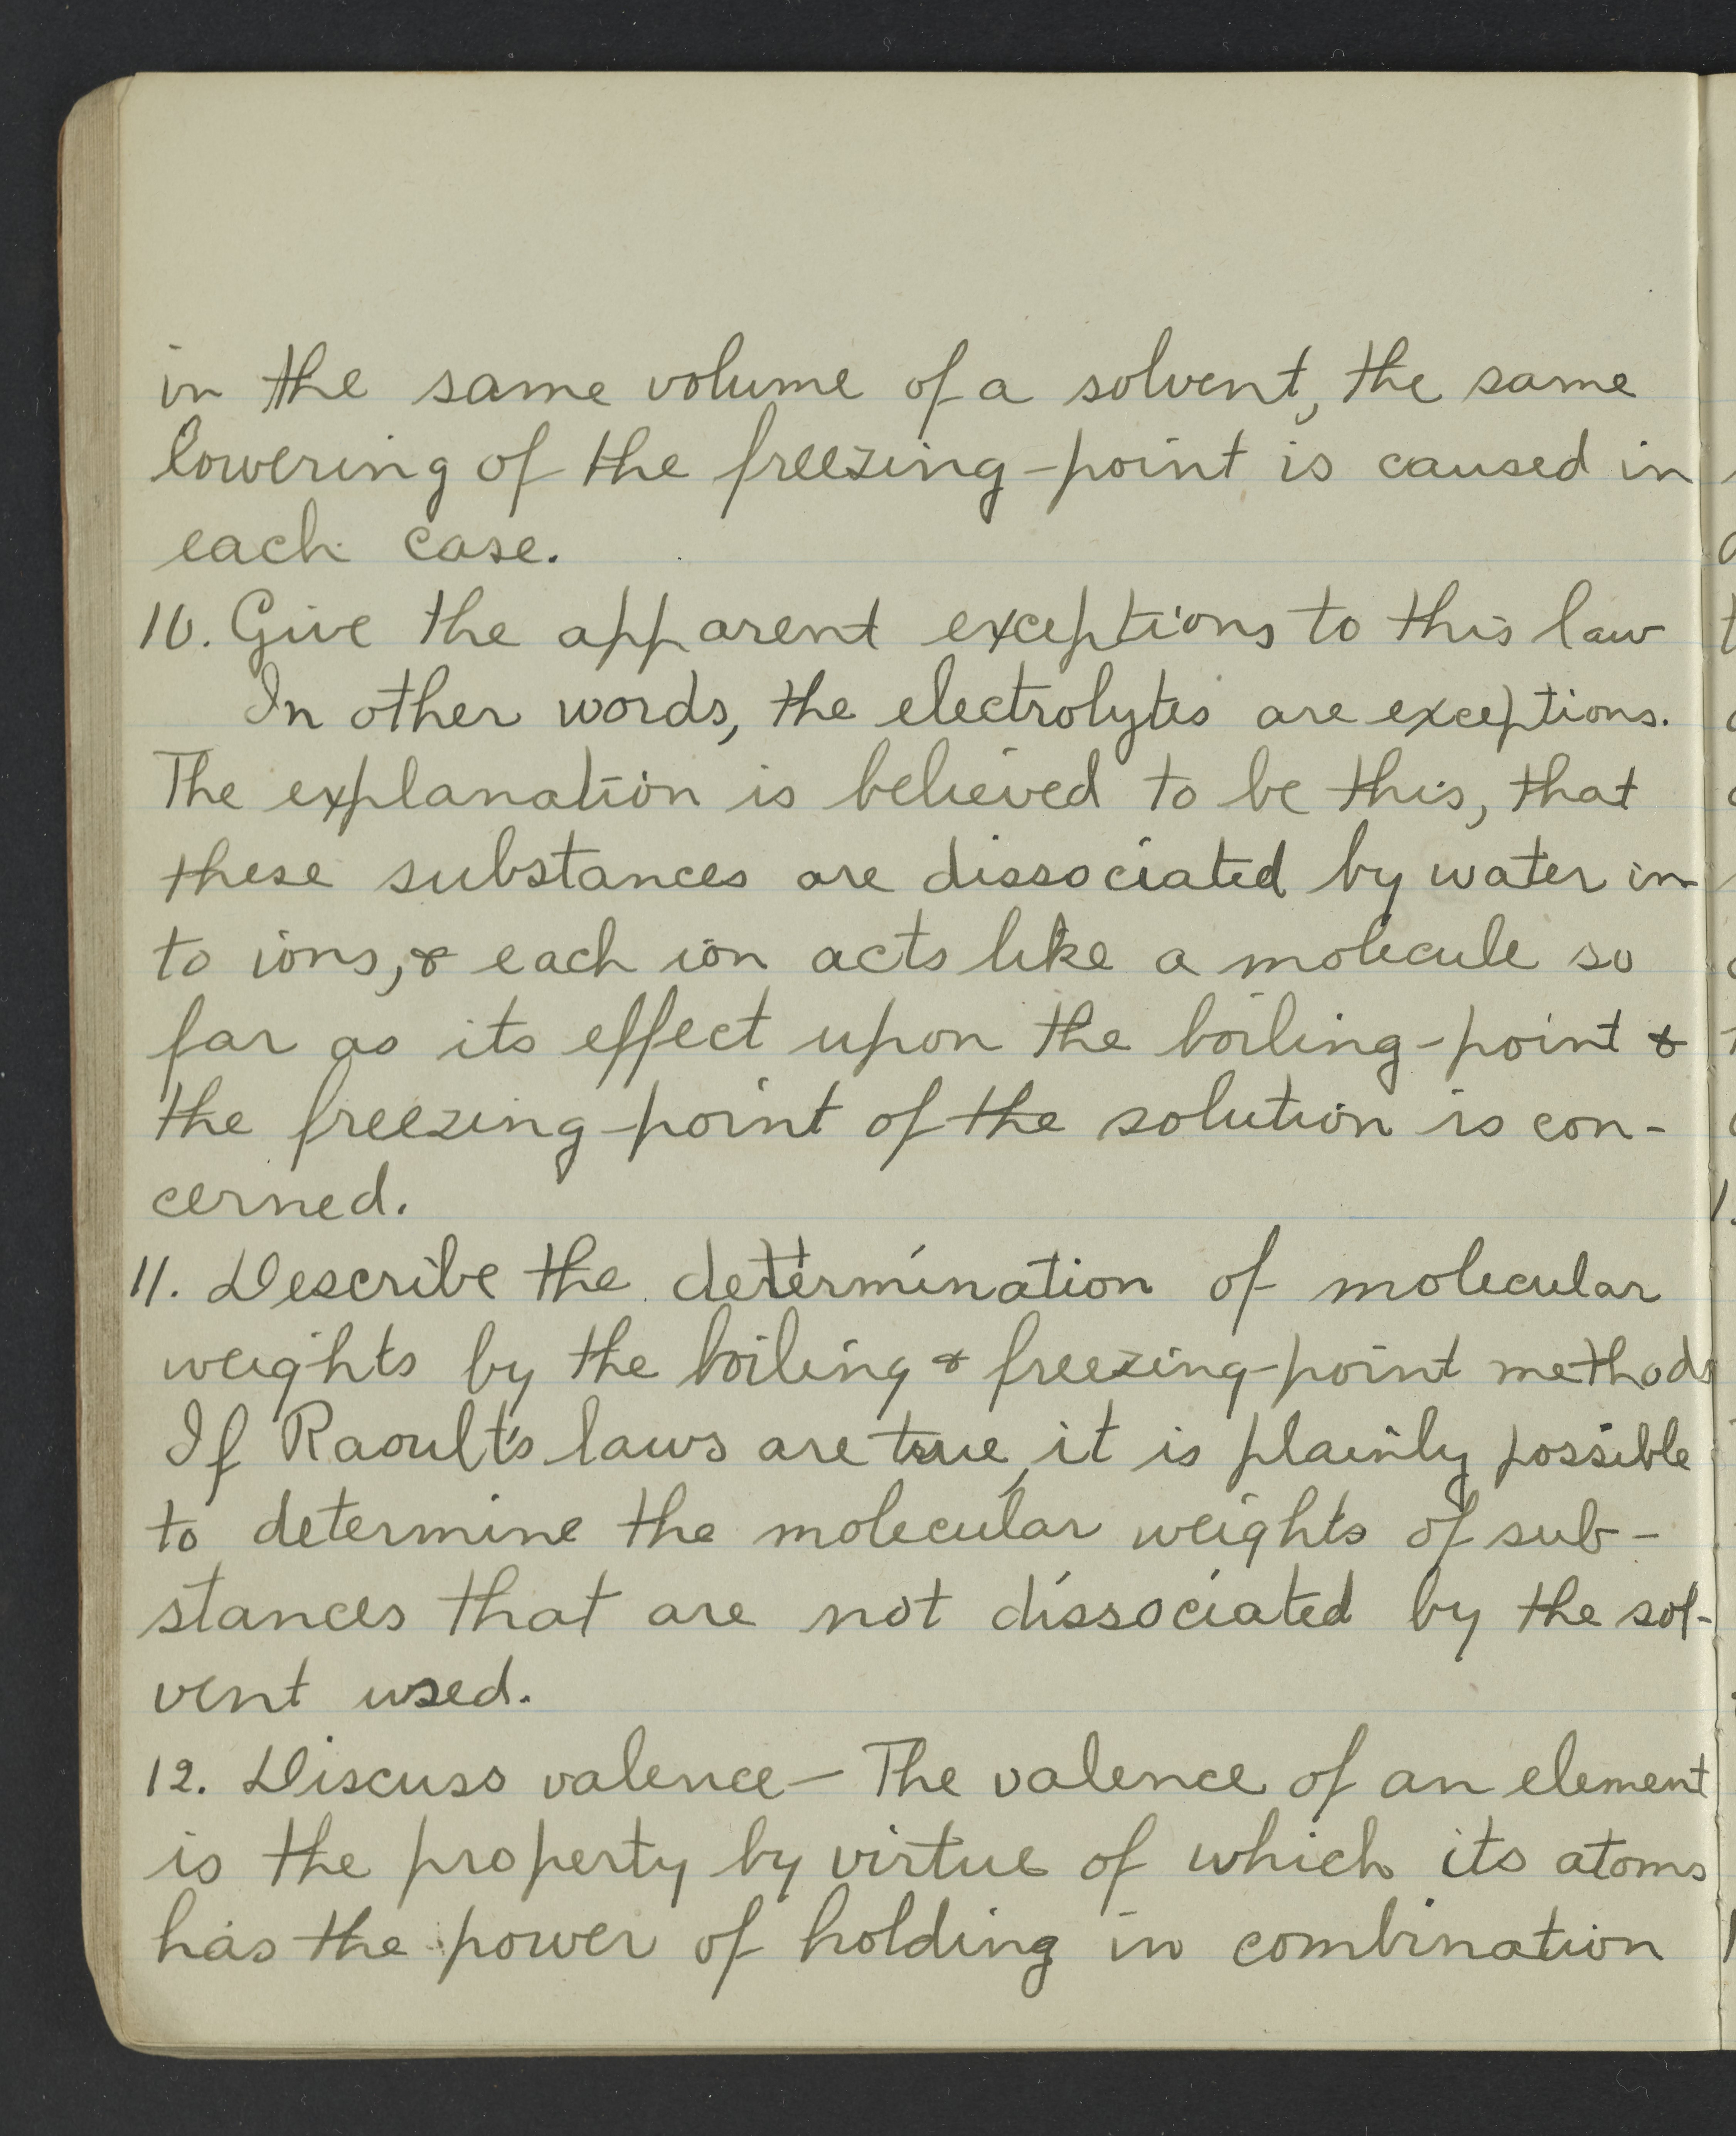 in the same volume of a solvent, the same
lowering of the freezing-point is caused in
each case.
10. Give the apparent exceptions to this law
In other words, the electrolytes are exceptions.
The explanation is believed to be this, that
these substances are dissociated by water in-
to ions, & each ion acts like a molecule so
far as its effect upon the boiling-point &
the freezing-point of the solution is con-
cerned.
11. Describe the determination of molecular
weights by the boiling & freezing-point methods
If Raoult's laws are true, it is plainly possible
to determine the molecular weights of sub-
stances that are not dissociated by the sol-
vent used.
12. Discuss valence — The valence of an element
is the property by virtue of which its atoms
has the power of holding in combination